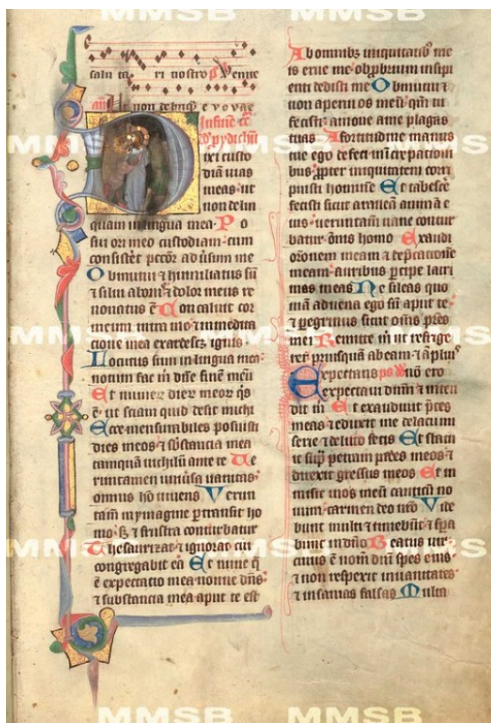 MMSB MMSB
salu ta ri nostro ps Venite
non delinq e v o v a e
In finem
ixi custo
diam vias
meas ut
non delin
quam in lingua mea Po
sui ori meo custodiam cum
consisteret peccor adversum me
Obmutui & humiliatus sum
& silui a bonis & dolor meus re
novatus e Concaluit cor
meum intra me & in medita
tione mea exardescet ignis
Locutus sum in lingua mea
notum fac michi dne finem meum
Et numerum dierum meorum quis
e ut sciam quid desit michi
Ecce mensurabiles posuisti
dies meos & substancia mea
tamquam nichilum ante te Ve
rumtamen universa vanitas
omnis homo vivens Verum
tamen in ymagine pertransit ho
mo sed & frustra conturbatur
Thesaurizat & ignorat cui
congregabit ea Et nunc que
e expectatio mea nonne dns
& substancia mea aput te est
Ab omnibus iniquitatibus me
is erue me obprobrium insipi
enti dedisti me Obmutui &
non aperui os meum quoniam tu
fecisti amove a me plagas
tuas A fortitudine manus
tue ego defeci in increpationibus
propter iniquitatem corri
puisti hominem Et tabesce
fecisti sicut araneam animam e
ius verumtamen vane contur
batur omnis homo Exaudi
orationem meam & deprecationem
meam auribus percipe lacri
mas meas Ne sileas quo
niam advena ego sum aput te
& peregrinus sicut omnes patres
mei Remitte michi ut refrige
rer priusquam abeam & amplius
Expectans ps non ero
expectavi dominum & inten
dit michi Et exaudivit preces
meas & eduxit me de lacu mi
serie & de luto fecis Et statu
it supra petram pedes meos &
direxit gressus meos Et in
misit in os meum canticum no
vum carmen deo nostro Vide
bunt multi & timebunt & spera
bunt in domino Beatus vir
cuius e nomen domini spes eius
& non respexit in vanitates
& insanias falsas Multa
MMSB MMSB